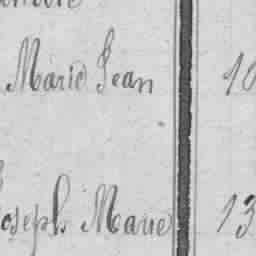 Marie Jean 10
Joseph Marie 13